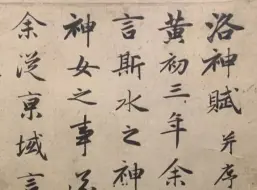 洛神賦 并序
黃初三年余
言斯水之神
神女之事
余從京域言